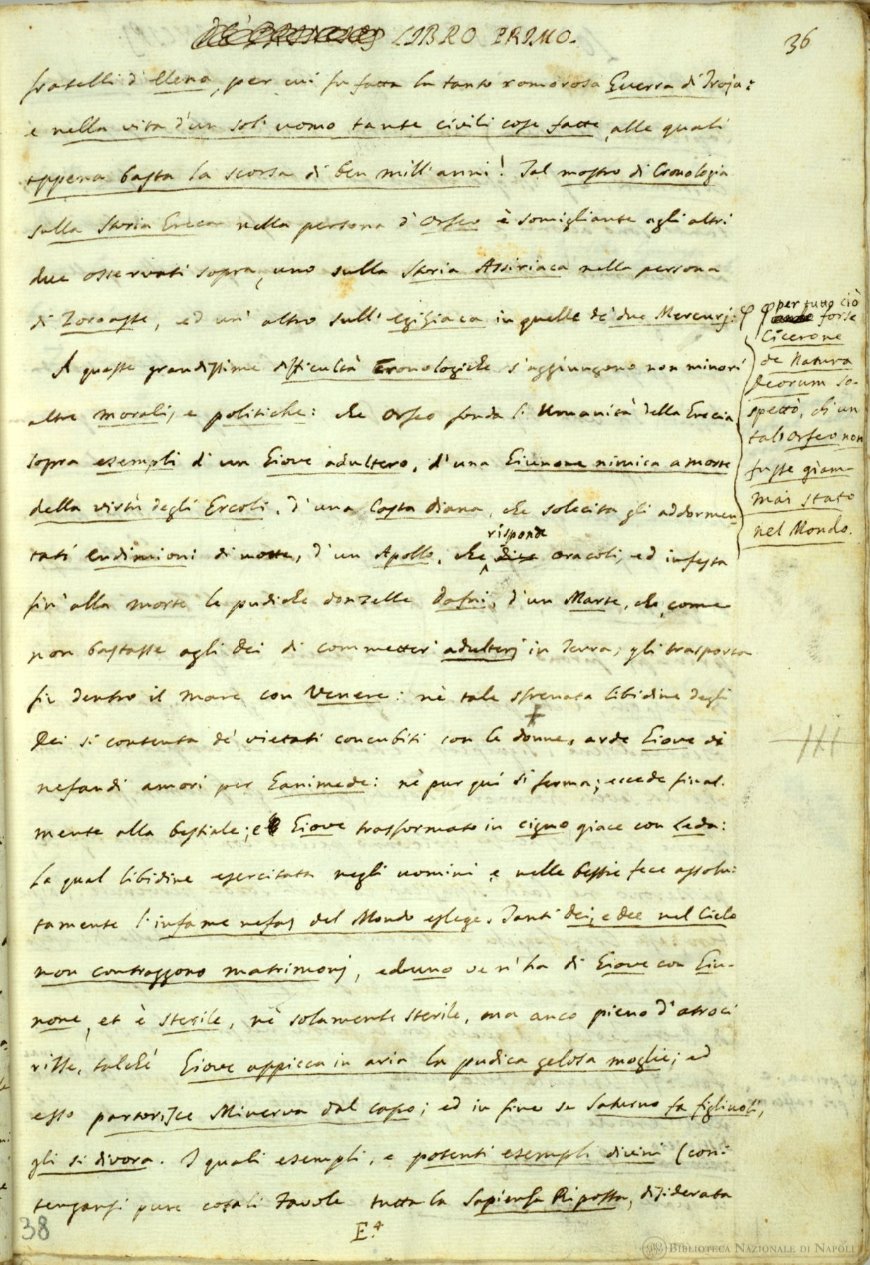 LIBRO PRIMO.
36
fratelli d'Elena, per cui fu fatta la tanto romorosa Guerra di Troja:
e nella vita d'un sol' uomo tante civili cose fatte, alle quali
appena basta la scorsa di ben mill'anni! Tal mostro di Cronologia
sulla Storia Greca nella persona d'Orfeo è somigliante agli altri
due osservati sopra, uno sulla Storia Assiriaca nella persona
di Zoroaste, ed un' altro sull' Egiziaca in quelle de' due Mercurj: φ
A queste grandissime difficultà Cronologiche s'aggiungono non minori
altre morali, e politiche: che Orfeo fonda l'Umanità della Grecia
sopra esempli d'un Giove adultero, d'una Giunone nimica a morte
della virtù degli Ercoli, d'una Casta Diana, che solecita gli addormen-
tati Endimioni di notte, d'un Apollo, che risponde oracoli, ed infesta
fin' alla morte le pudiche donzelle Dafni, d'un Marte, che, come
non bastasse agli Dei di commetter' adulterj in Terra, gli trasporta
fin dentro il mare con Venere: nè tale sfrenata libidine degli
Dei si contenta de' vietati concubiti con le donne, arde Giove di
nefandi amori per Ganimede: nè pur quì si ferma; eccede final-
mente alla bestiale; e Giove trasformato in cigno giace con Leda:
La qual libidine esercitata negli uomini e nelle bestie fece assolu-
tamente l'infame nefas del Mondo eslege. Tanti Dei, e Dee nel Cielo
non contraggono matrimonj, ed uno ve n'ha di Giove con Giu-
none, et è sterile, nè solamente sterile, ma anco pieno d'atroci
risse, talchè Giove appicca in aria la pudica gelosa moglie; ed
esso partorisce Minerva dal capo; ed in fine se Saturno fa figliuoli,
gli si divora. I quali esempli, e potenti esempli divini (con-
tengansi pure cotali Favole tutta la Sapienza Riposta, disiderata
φ per tutto ciò
forse
Cicerone
de Natura
Deorum so-
spettò, ch'un
tal Orfeo non
fusse giam-
mai stato
nel Mondo.
38
E.4
BIBLIOTECA NAZIONALE DI NAPOLI